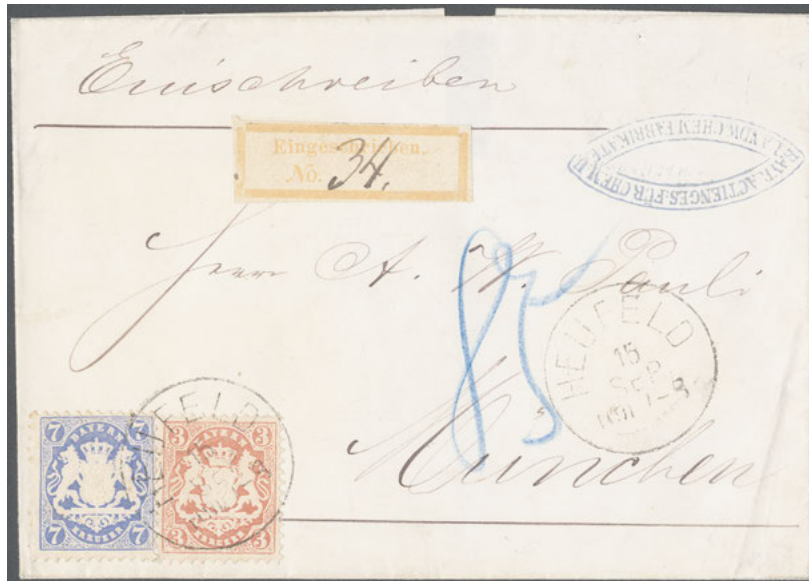 Einschreiben
Eingeschrieben.
No. 34.
BAYR. ACTIENGES. FÜR CHEM. U.
LANDW. CHEM. FABRIKATE
Herrn A. W. Pauli
85
HEUFELD
15
SEP
München
7 BAYERN 7
7 KREUZER 7
3 BAYERN 3
3 KREUZER 3